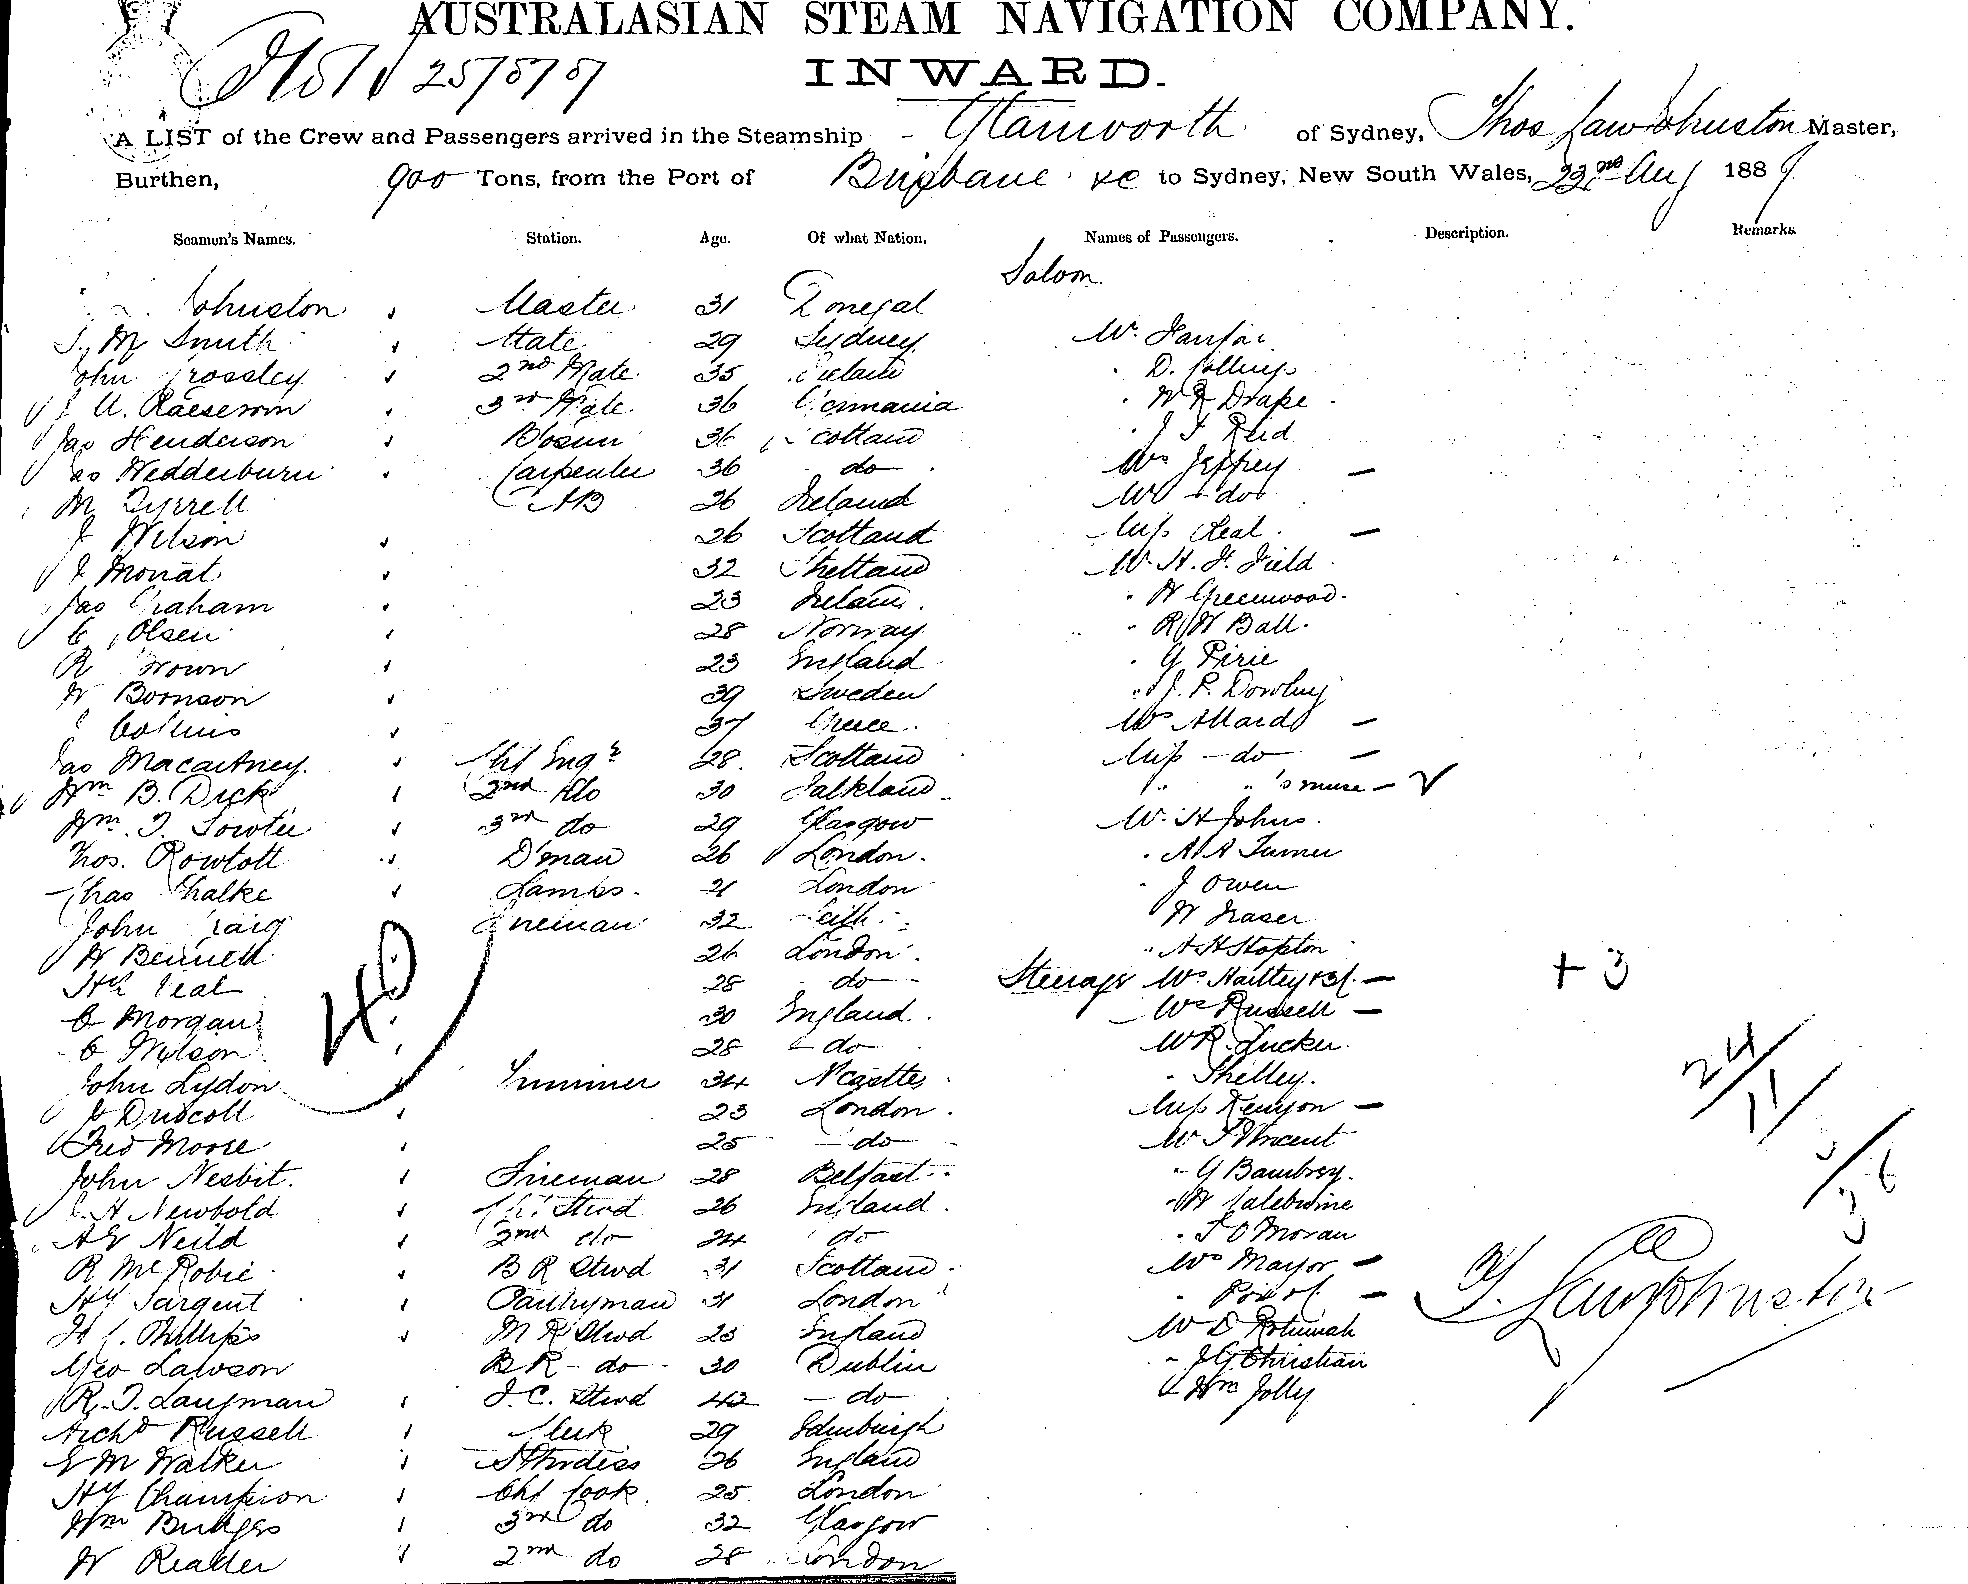 AUSTRALASIAN STEAM NAVIGATION COMPANY.
INWARD.
A LIST of the Crew and Passengers arrived in the Steamship Glanworth of Sydney, Thos Law Johnston Master,
Burthen, 900 Tons, from the Port of Brisbane &c to Sydney, New South Wales, 22nd Aug 188
Seamen's Names. Station. Age. Of what Nation. Names of Passengers. Description. Remarks.
Saloon
Johnston Master 31 Donegal
Smith Mate 29 Sydney
John Crossley 2nd Mate 35 Ireland
3rd Mate 36 Germania
Jas Henderson Bosun 36 Scotland
Jas Wedderburn Carpenter 36 do
M Tyrrell AB 26 Ireland
J Wilson 26 Scotland
J Mouat 32 Shetland
Jas Graham 23 Ireland
C Olsen 28 Norway
R Brown 23 England
W Boornson 39 Sweden
J Collins 37 Greece
Jas Macartney Chf Engr 28 Scotland
Wm B. Dick 2nd do 30 Falkland
Wm. T. Sowter 3rd do 29 Glasgow
Thos. D'man 26 London
Chas Chalke Lamps 21 London
John Craig Fireman 32 Leith
W Bennett 26 London
Hy Leal 28 do
C Morgan 30 England
C Wilson 28 do
John Lydon Trimmer 34 N'castle
J Driscoll 23 London
Fred Moore 25 do
John Nesbit Fireman 28 Belfast
H Newbold Chf Stwd 26 England
AE Neild 2nd do 24 do
R McRobie B R Stwd 31 Scotland
Hy Sargent Pantryman 21 London
H C Phillips M R Stwd 23 England
Geo Lawson B R do 30 Dublin
R. T. Langman F.C. Stwd 42 do
Archd Russell Clerk 29 Edinburgh
E M Walker Stwdess 26 England
Hy Champion Chf Cook 25 London
Wm Bridges 3rd do 32 Glasgow
W Reader 2nd do 28 London
D. Collins
W R Drake
J T Reid
Mrs Jeffrey
Mr do
Miss Leal
Mr H. F. Field
W Greenwood
R W Ball
G Pirie
J. P. Dowling
Mrs Allard
Miss do
" " 's nurse
Mr H Johns
A A Turner
J Owen
W Fraser
A H Stopton
Steerage Mrs Hartley & 3 c
Mrs Russell
Mr R. Tucker
Shelley
Miss Kenyon
Mr T Vincent
G Bambrey
T O Moran
Mrs Mayor
Mr D
J G Christian
Wm Jolly
40
+ 3
24/11
T. Law Johnston